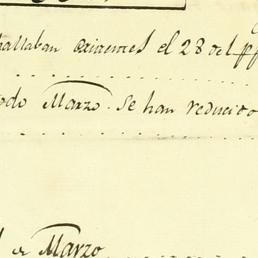 hallaban existentes el 28 del pp
odo Marzo. Se han reducido
de Marzo